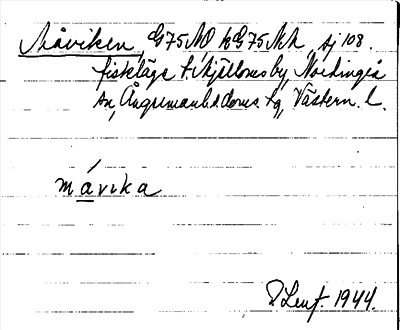 Måviken, G75NO k G75NN, sj 108.
fiskeläge t. Kjällom by, Nordingrå
sn, Ångermanl.s doms.sg, Västern. l.
mávika
D Lenf. 1944.